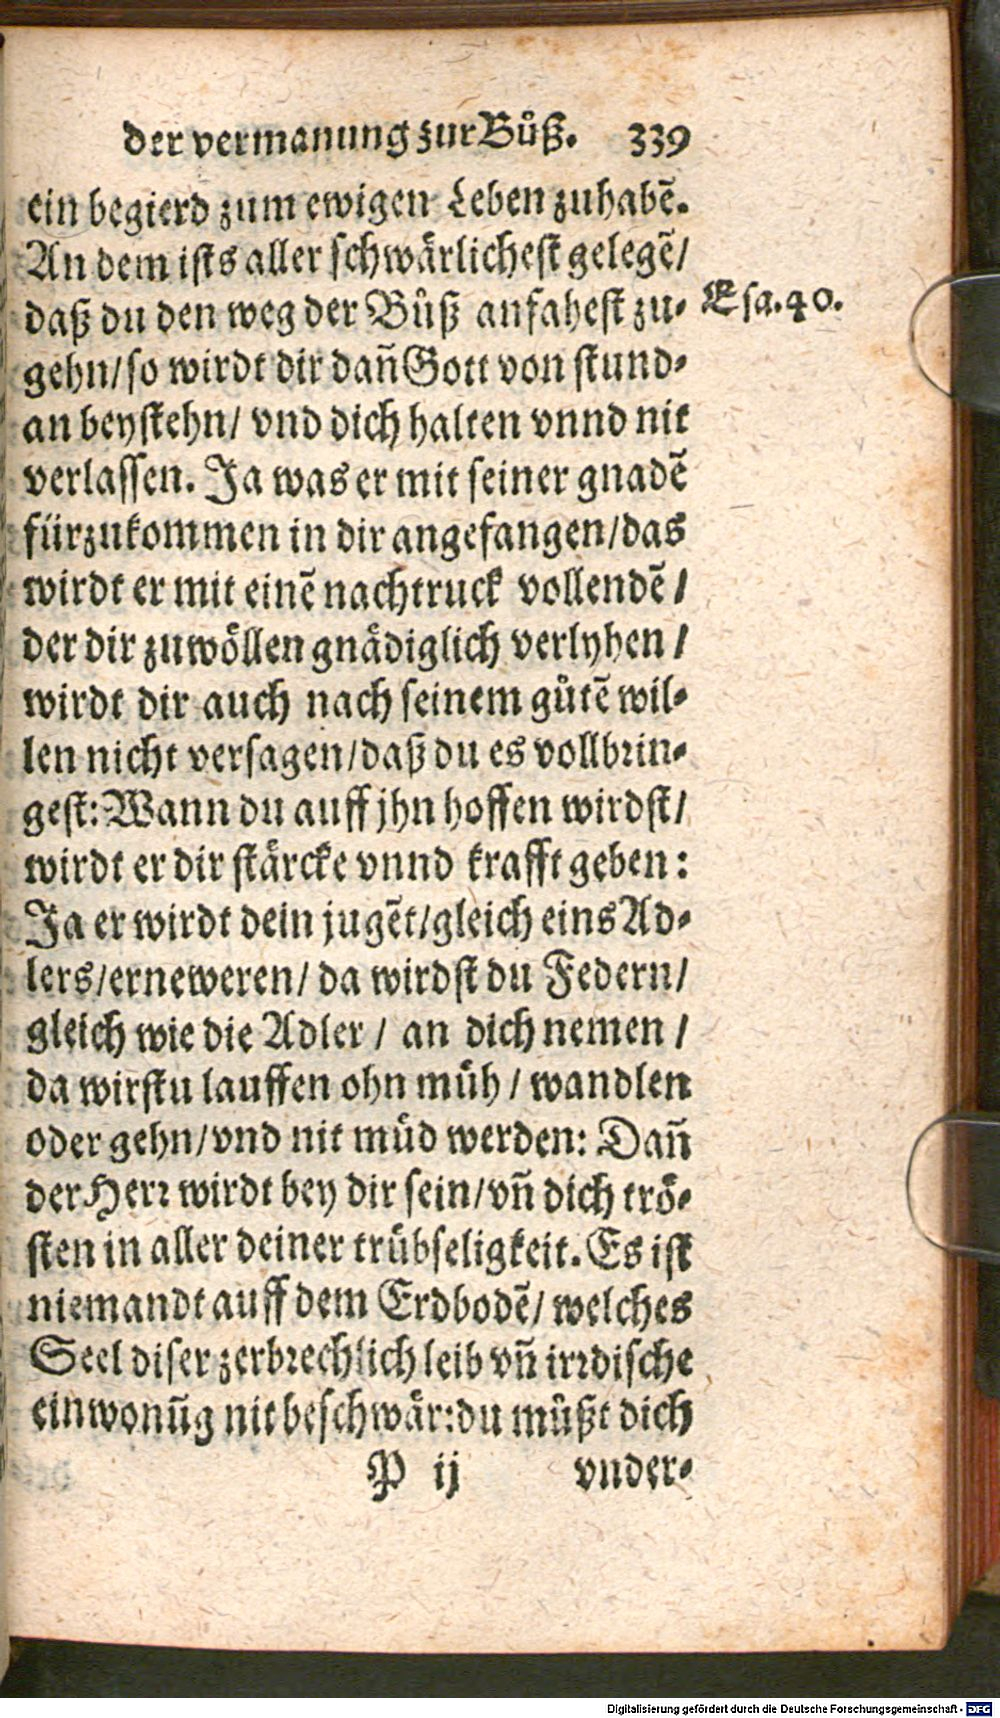 der vermanung zur Bůß. 339
ein begierd zum ewigen Leben zuhabẽ.
An dem ists aller schwärlichest gelegẽ/
daß du den weg der Bůß anfahest zu-
Esa. 40.
gehn/so wirdt dir dañ Gott von stund-
an beystehn/ vnd dich halten vnnd nit
verlassen. Ja was er mit seiner gnadẽ
fürzukommen in dir angefangen/das
wirdt er mit einẽ nachtruck vollendẽ /
der dir zuwöllen gnädiglich verlyhen /
wirdt dir auch nach seinem gůtẽ wil-
len nicht versagen/daß du es vollbrin-
gest: Wann du auff jhn hoffen wirdst/
wirdt er dir stärcke vnnd krafft geben:
Ja er wirdt dein jugẽt/gleich eins Ad-
lers/erneweren/ da wirdst du Federn/
gleich wie die Adler / an dich nemen /
da wirstu lauffen ohn müh / wandlen
oder gehn/vnd nit müd werden: Dañ
der Herr wirdt bey dir sein/vñ dich trö-
sten in aller deiner trübseligkeit. Es ist
niemandt auff dem Erdbodẽ/ welches
Seel diser zerbrechlich leib vñ irrdische
einwonũg nit beschwär: du můßt dich
P ij vnder-
Digitalisierung gefördert durch die Deutsche Forschungsgemeinschaft - DFG